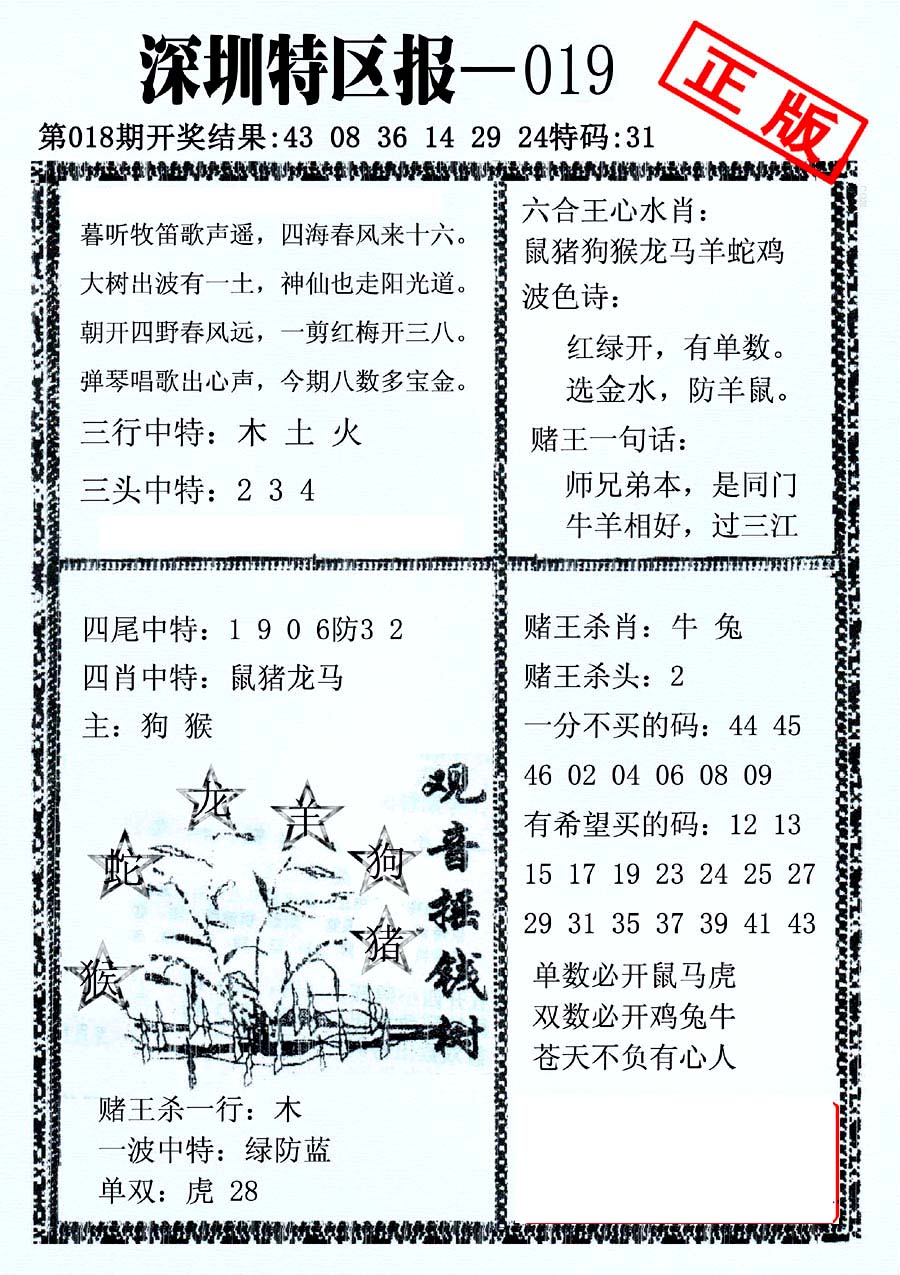 深圳特区报—019
正版
第018期开奖结果:43 08 36 14 29 24特码:31
暮听牧笛歌声遥，四海春风来十六。
大树出波有一土，神仙也走阳光道。
朝开四野春风远，一剪红梅开三八。
弹琴唱歌出心声，今期八数多宝金。
三行中特：木 土 火
三头中特：2 3 4
六合王心水肖：
鼠猪狗猴龙马羊蛇鸡
波色诗：
红绿开，有单数。
选金水，防羊鼠。
赌王一句话：
师兄弟本，是同门
牛羊相好，过三江
四尾中特：1 9 0 6防3 2
四肖中特：鼠猪龙马
主：狗 猴
龙
羊
蛇
狗
猪
猴
观音摇钱树
赌王杀一行：木
一波中特：绿防蓝
单双：虎 28
赌王杀肖：牛 兔
赌王杀头：2
一分不买的码：44 45
46 02 04 06 08 09
有希望买的码：12 13
15 17 19 23 24 25 27
29 31 35 37 39 41 43
单数必开鼠马虎
双数必开鸡兔牛
苍天不负有心人